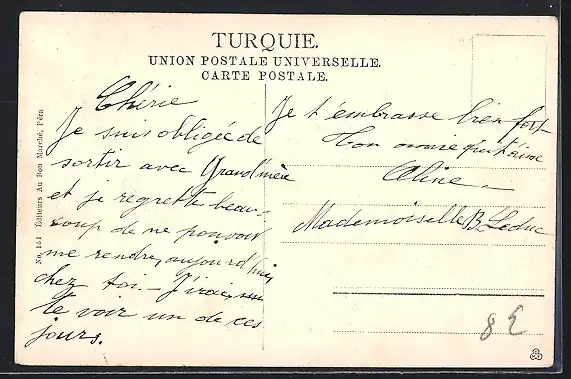 TURQUIE.
UNION POSTALE UNIVERSELLE.
CARTE POSTALE.
No. 151 Éditeurs Au Bon Marché, Péra
Chérie
Je suis obligée de
sortir avec Grand'mère
et je regrette beau-
coup de ne pouvoir
me rendre, aujourd'hui,
chez toi. - J'irai
te voir un de ces
jours.
Je t'embrasse bien fort
Ton qui t'aime
Aline -
Mademoiselle B. Leduc
8 £